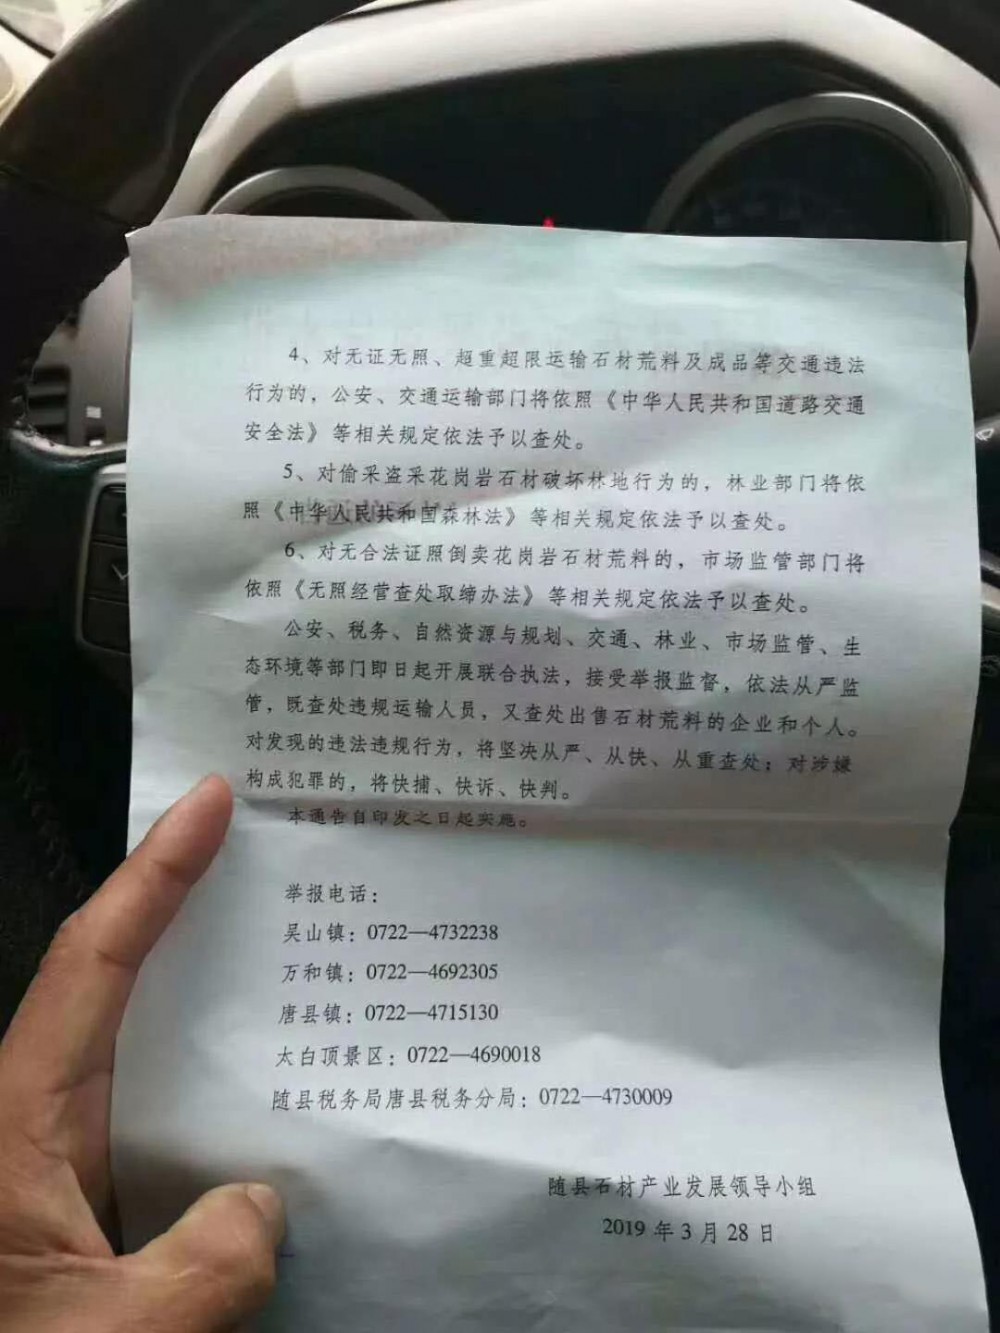 4、对无证无照、超重超限运输石材荒料及成品等交通违法
行为的，公安、交通运输部门将依照《中华人民共和国道路交通
安全法》等相关规定依法予以查处。
5、对偷采盗采花岗岩石材破坏林地行为的，林业部门将依
照《中华人民共和国森林法》等相关规定依法予以查处。
6、对无合法证照倒卖花岗岩石材荒料的，市场监管部门将
依照《无照经营查处取缔办法》等相关规定依法予以查处。
公安、税务、自然资源与规划、交通、林业、市场监管、生
态环境等部门即日起开展联合执法，接受举报监督，依法从严监
管，既查处违规运输人员，又查处出售石材荒料的企业和个人。
对发现的违法违规行为，将坚决从严、从快、从重查处；对涉嫌
构成犯罪的，将快捕、快诉、快判。
本通告自印发之日起实施。
举报电话：
吴山镇：0722—4732238
万和镇：0722—4692305
唐县镇：0722—4715130
太白顶景区：0722—4690018
随县税务局唐县税务分局：0722—4730009
随县石材产业发展领导小组
2019年3月28日